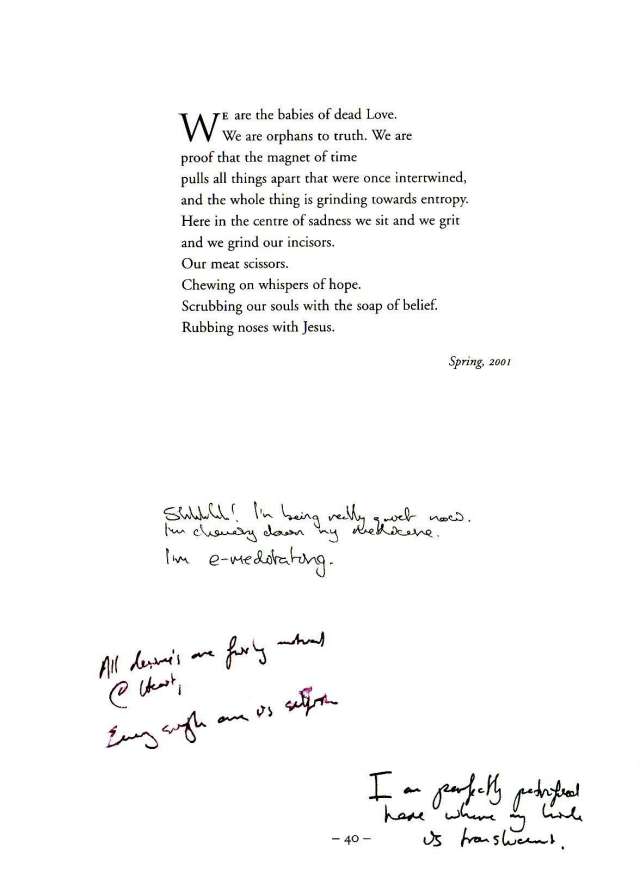 WE are the babies of dead Love.
We are orphans to truth. We are
proof that the magnet of time
pulls all things apart that were once intertwined,
and the whole thing is grinding towards entropy.
Here in the centre of sadness we sit and we grit
and we grind our incisors.
Our meat scissors.
Chewing on whispers of hope.
Scrubbing our souls with the soap of belief.
Rubbing noses with Jesus.
Spring, 2001
I'm being really quiet now.
I'm chewing down my
I'm e-meditating.
All are
@ Heart,
Every single one is
I am perfectly petrified
here where my hide
is translucent.
– 40 –